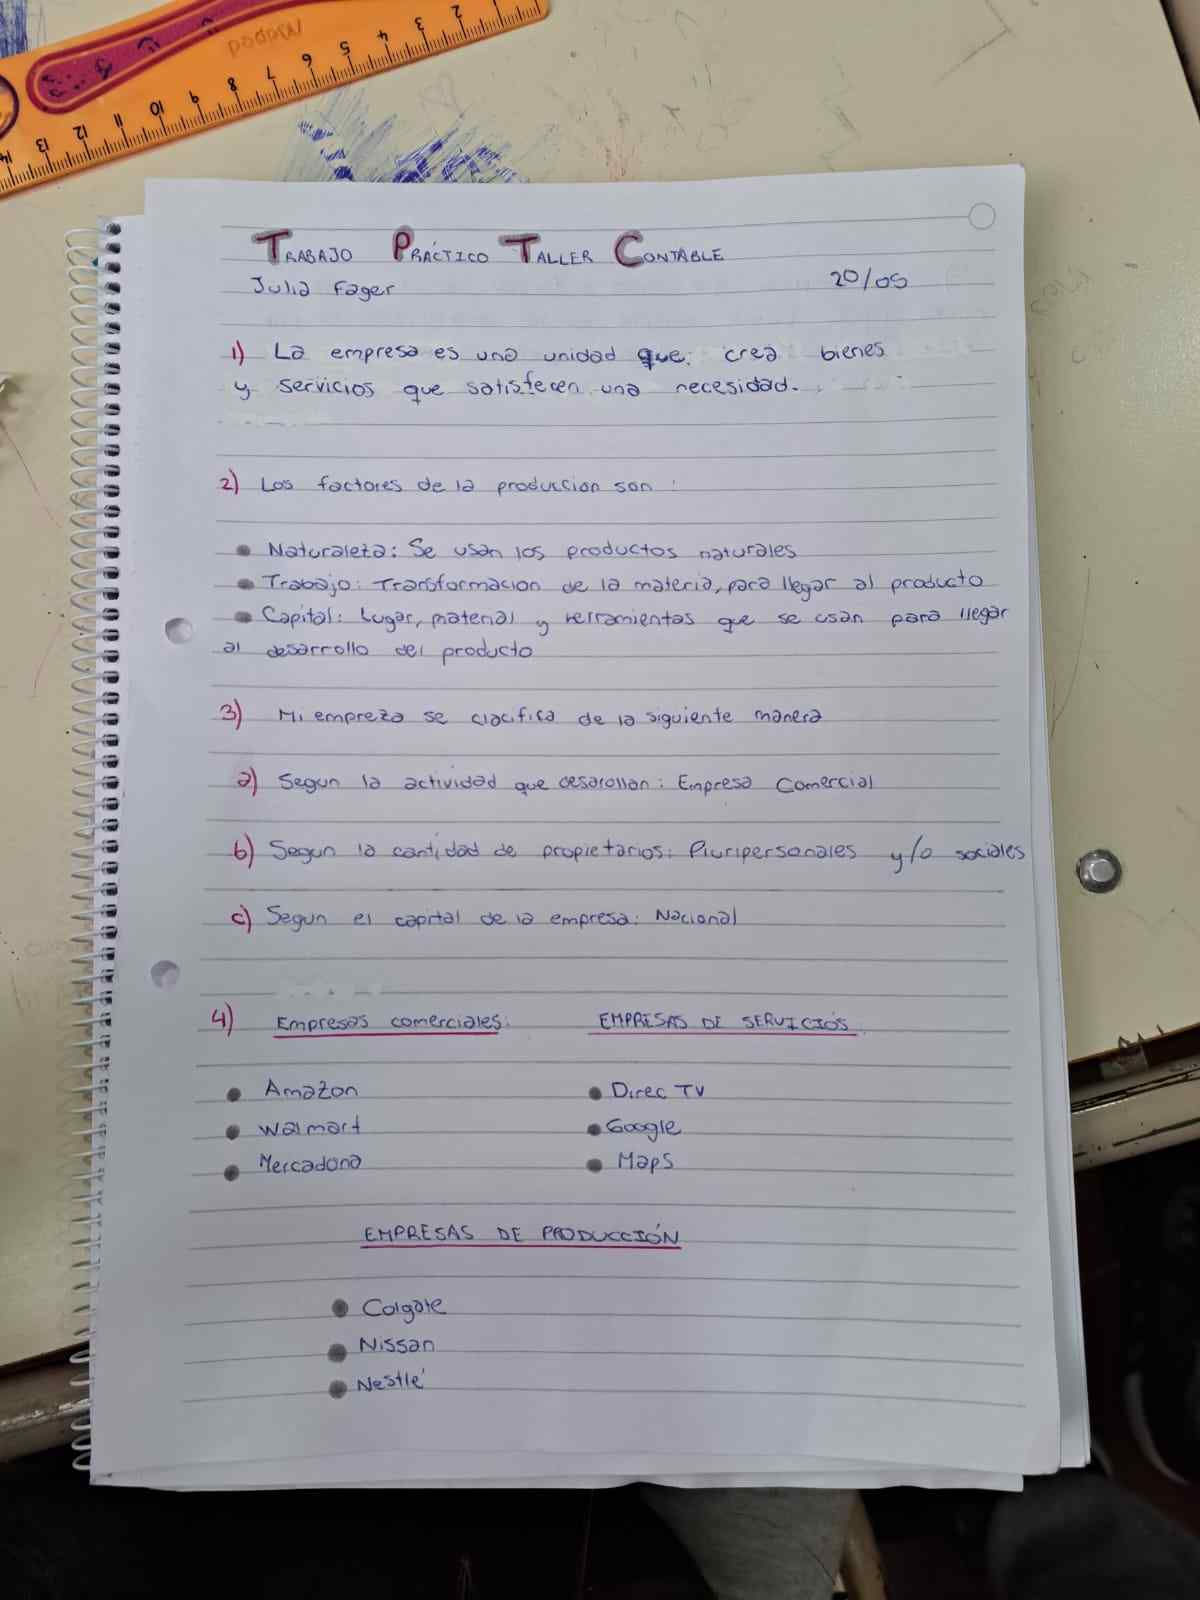 TRABAJO PRÁCTICO TALLER CONTABLE
Julia Fager 20/05
1) La empresa es una unidad que crea bienes
y servicios que satisfecen una necesidad.
2) Los factores de la produccion son:
Naturaleza: Se usan los productos naturales
Trabajo: Transformacion de la materia, para llegar al producto
Capital: Lugar, material y herramientas que se usan para llegar
al desarrollo del producto
3) Mi empreza se clacifica de la siguiente manera
a) Segun la actividad que desarollan: Empresa Comercial
b) Segun la cantidad de propietarios: Pluripersonales y/o sociales
c) Segun el capital de la empresa: Nacional
4) Empresas comerciales: EMPRESAS DE SERVICIOS
Amazon Direc TV
Walmart Google
Mercadona Maps
EMPRESAS DE PRODUCCIÓN
Colgate
Nissan
Nestlé
2 3 4 5 6 7 8 9 10 11 12 13 14